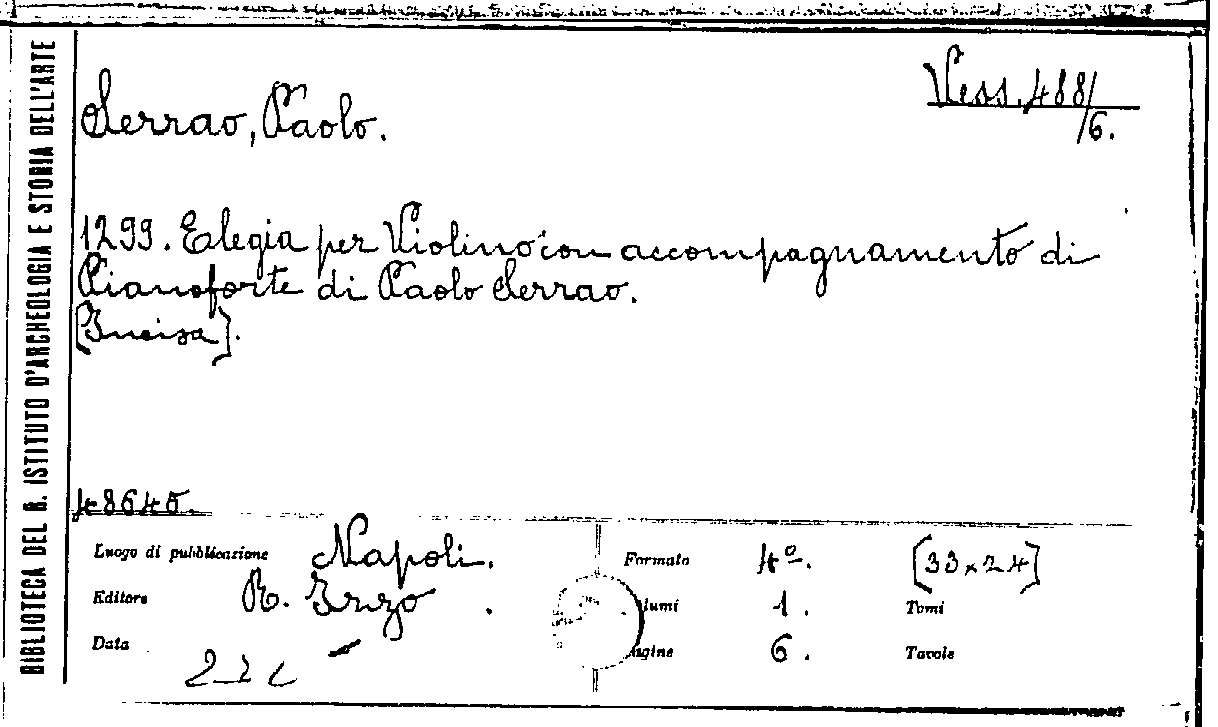 BIBLIOTECA DEL R. ISTITUTO D'ARCHEOLOGIA E STORIA DELL'ARTE
Serrao, Paolo.
Vess. 488/
/6.
1299. Elegia per Violino con accompagnamento di
Pianoforte di Paolo Serrao.
[Incisa].
48645.
Luogo di pubblicazione Napoli. Formato 4º. [33x24]
Editore R. lumi 1. Tomi
Data - agine 6. Tavole